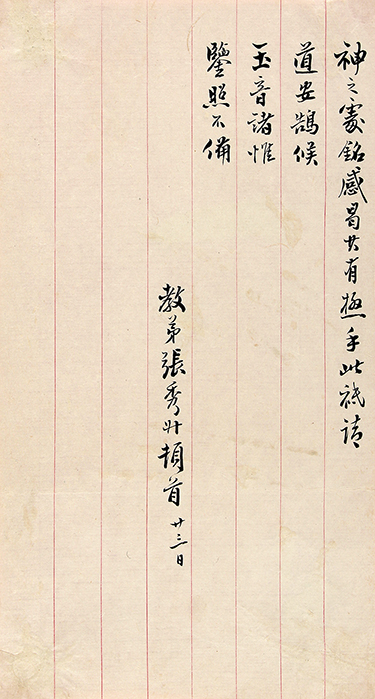 神之處銘感曷其有極手此祗請
道安鵠候
玉音諸惟
鑒照不備
教弟張秀升頓首 廿三日